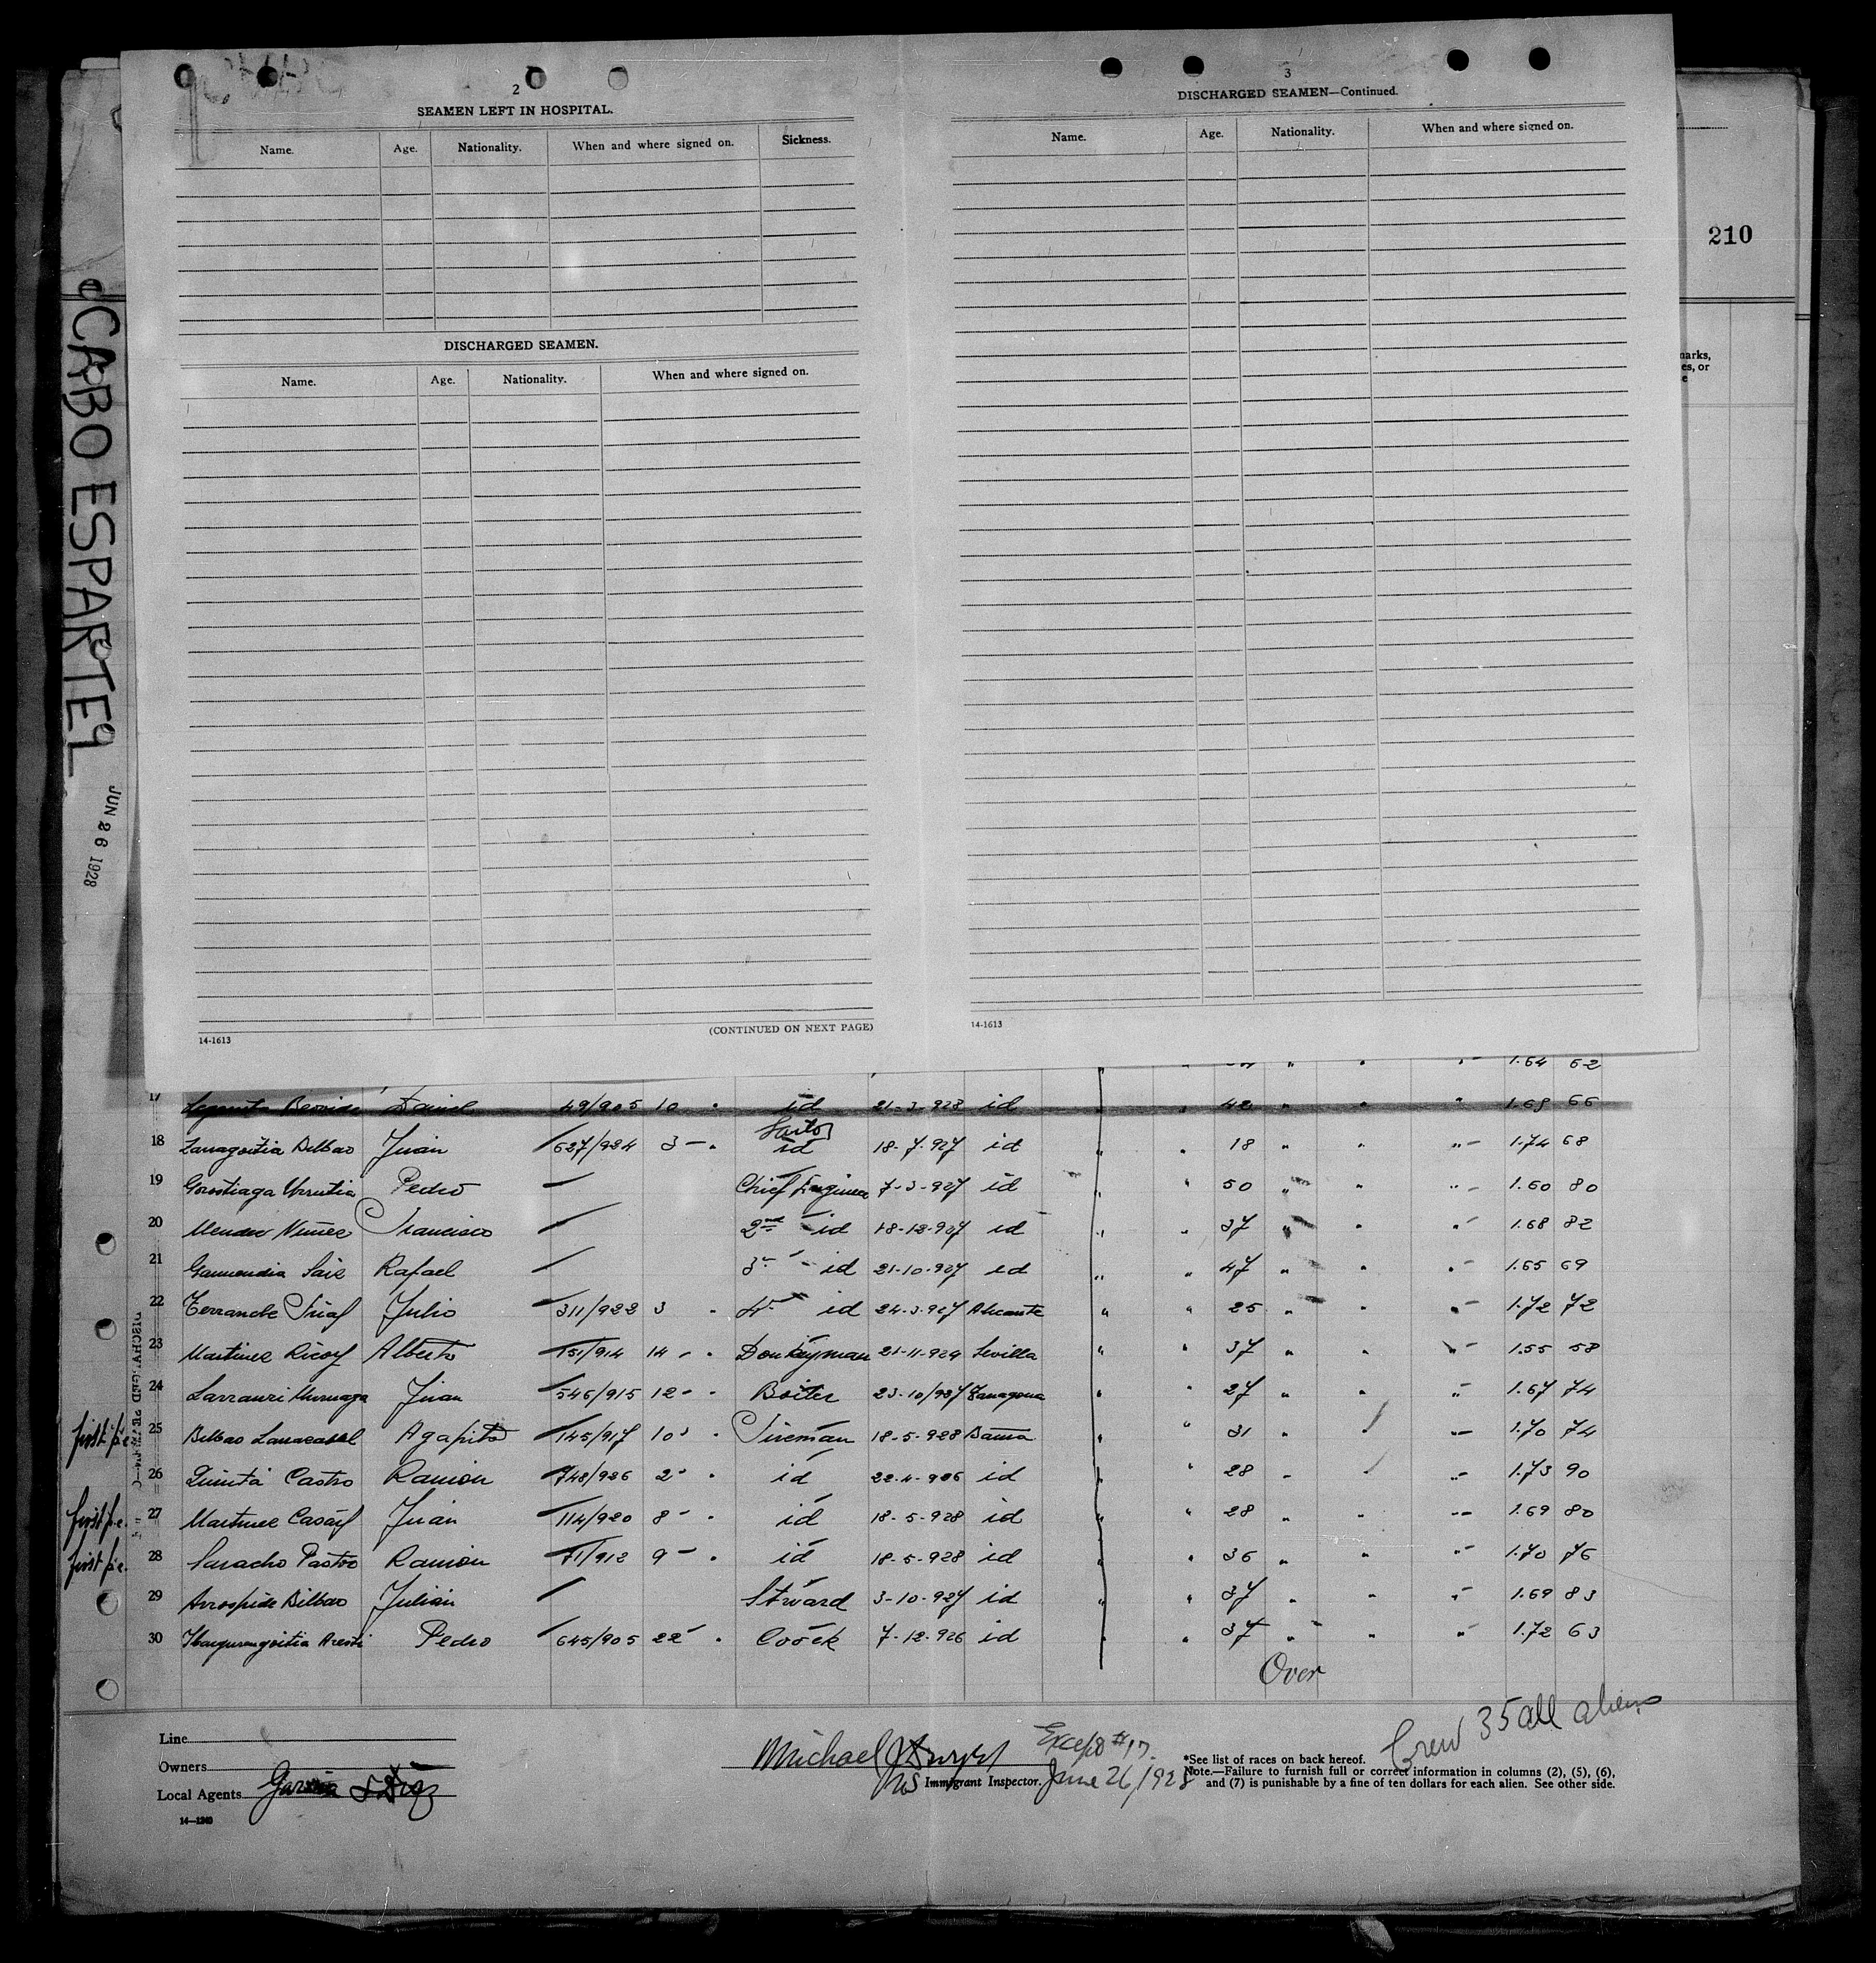 2
SEAMEN LEFT IN HOSPITAL.
Name. Age. Nationality. When and where signed on. Sickness.
DISCHARGED SEAMEN.
Name. Age. Nationality. When and where signed on.
14-1613 (CONTINUED ON NEXT PAGE)
3
DISCHARGED SEAMEN—Continued.
Name. Age. Nationality. When and where signed on.
14-1613
210
arks,
es, or
e
CABO ESPARTEL
JUN 26 1928
1.64 62
17 49/905 10 id 21-3-928 id 42 " " " 1.68 66
18 Bilbao Juan 627/924 3 - id 18-7-927 id " " 18 " " " 1.74 68
19 Gorostiaga Urrutia Pedro Chief Engineer 7-3-927 id " " 50 " " " 1.60 80
20 Mendez Nuñez Francisco 2nd id 18-12-927 id " " 37 " " " 1.68 82
21 Garmendia Saiz Rafael 3 id 21-10-927 id " " 47 " " " 1.65 69
22 Julio 311/922 3 4 id 24-3-927 Alicante " " 25 " " " 1.72 72
23 Martinez Alberto 151/914 14 Donkeyman 21-11-924 Sevilla " " 37 " " " 1.55 58
24 Larrauri Juan 546/915 12 23-10/927 " " 27 " " " 1.67 74
25 Bilbao Agapito 145/917 10 Fireman 18-5-928 " " 31 " 1.70 74
26 Castro Ramon 748/926 2 id 22-4-926 id " " 28 " 1.73 90
27 Martinez Juan 114/920 8 id 18-5-928 id " " 28 " " 1.69 80
28 Saracho Ramon 71/912 9 id 18-5-928 id " " 36 " " " 1.70 76
29 Arrospide Bilbao Julián Stward 3-10-927 id " " 37 " " " 1.69 83
30 Pedro 645/905 22 Coock 7-12-926 id " " 37 " " " 1.72 63
first
first
first
Over
Crew 35 all aliens
Line
Owners
Local Agents Garcia & Diaz
14—1240
Michael
Except #17.
Immigrant Inspector. June 26/1928
*See list of races on back hereof.
Note.—Failure to furnish full or correct information in columns (2), (5), (6),
and (7) is punishable by a fine of ten dollars for each alien. See other side.